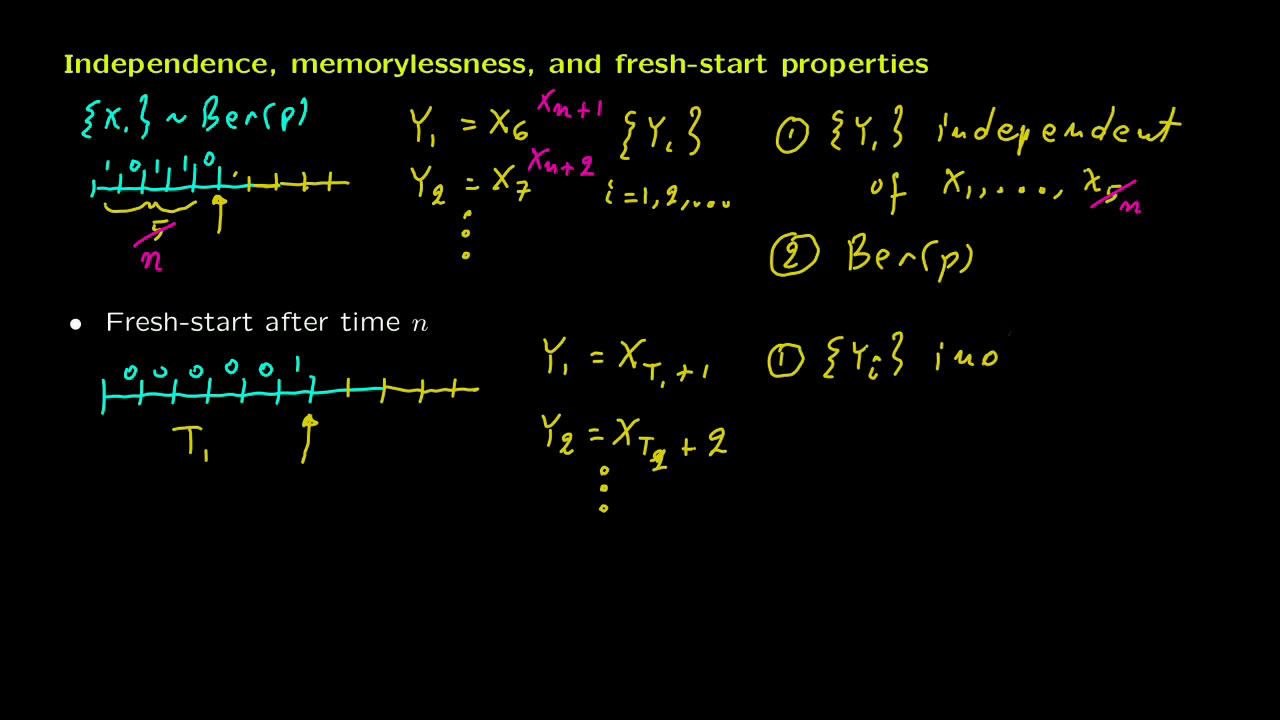 Independence, memorylessness, and fresh-start properties
{X_i} ~ Ber(p)
1 0 1 1 0
5
n
Y_1 = X_6 X_{n+1}
Y_2 = X_7 X_{n+2}
⋮
{Y_i}
i=1,2,...
① {Y_i} independent
of X_1, ..., X_5 n
② Ber(p)
• Fresh-start after time n
0 0 0 0 0 1
T_1
Y_1 = X_{T_1+1}
Y_2 = X_{T_2+2}
⋮
① {Y_i} ind